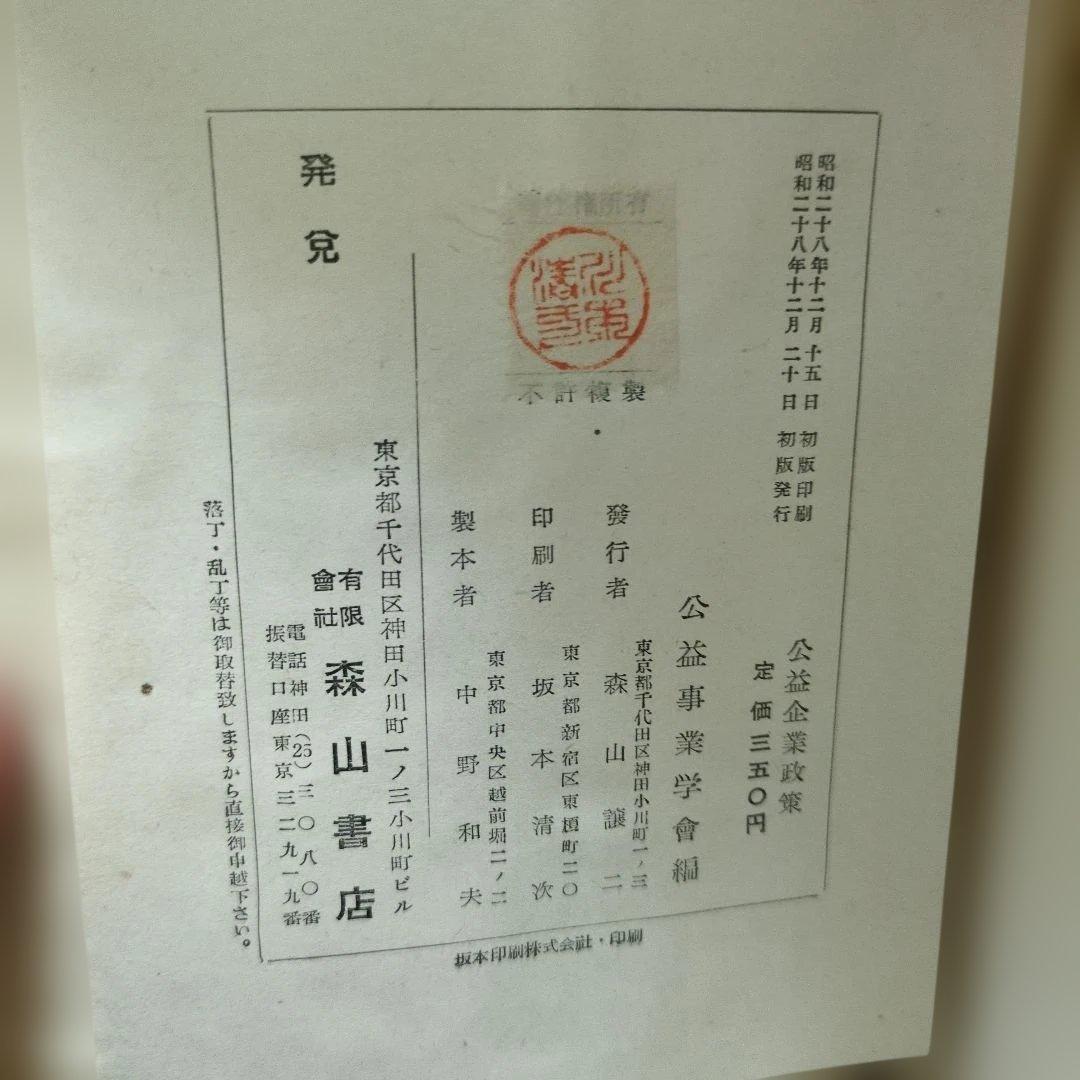 昭和二十八年十二月十五日 初版印刷
昭和二十八年十二月二十日 初版発行
公益企業政策
定価三五〇円
公益事業学會編
著作権所有
不許複製
發行者 森山譲二
東京都千代田区神田小川町一ノ三
印刷者 坂本清次
東京都新宿区東榎町二〇
製本者 中野和夫
東京都中央区越前堀二ノ二
発兌
東京都千代田区神田小川町一ノ三小川町ビル
有限會社 森山書店
電話神田(25)三〇八〇番
振替口座東京三二九一九番
落丁・乱丁等は御取替致しますから直接御申越下さい。
坂本印刷株式会社・印刷